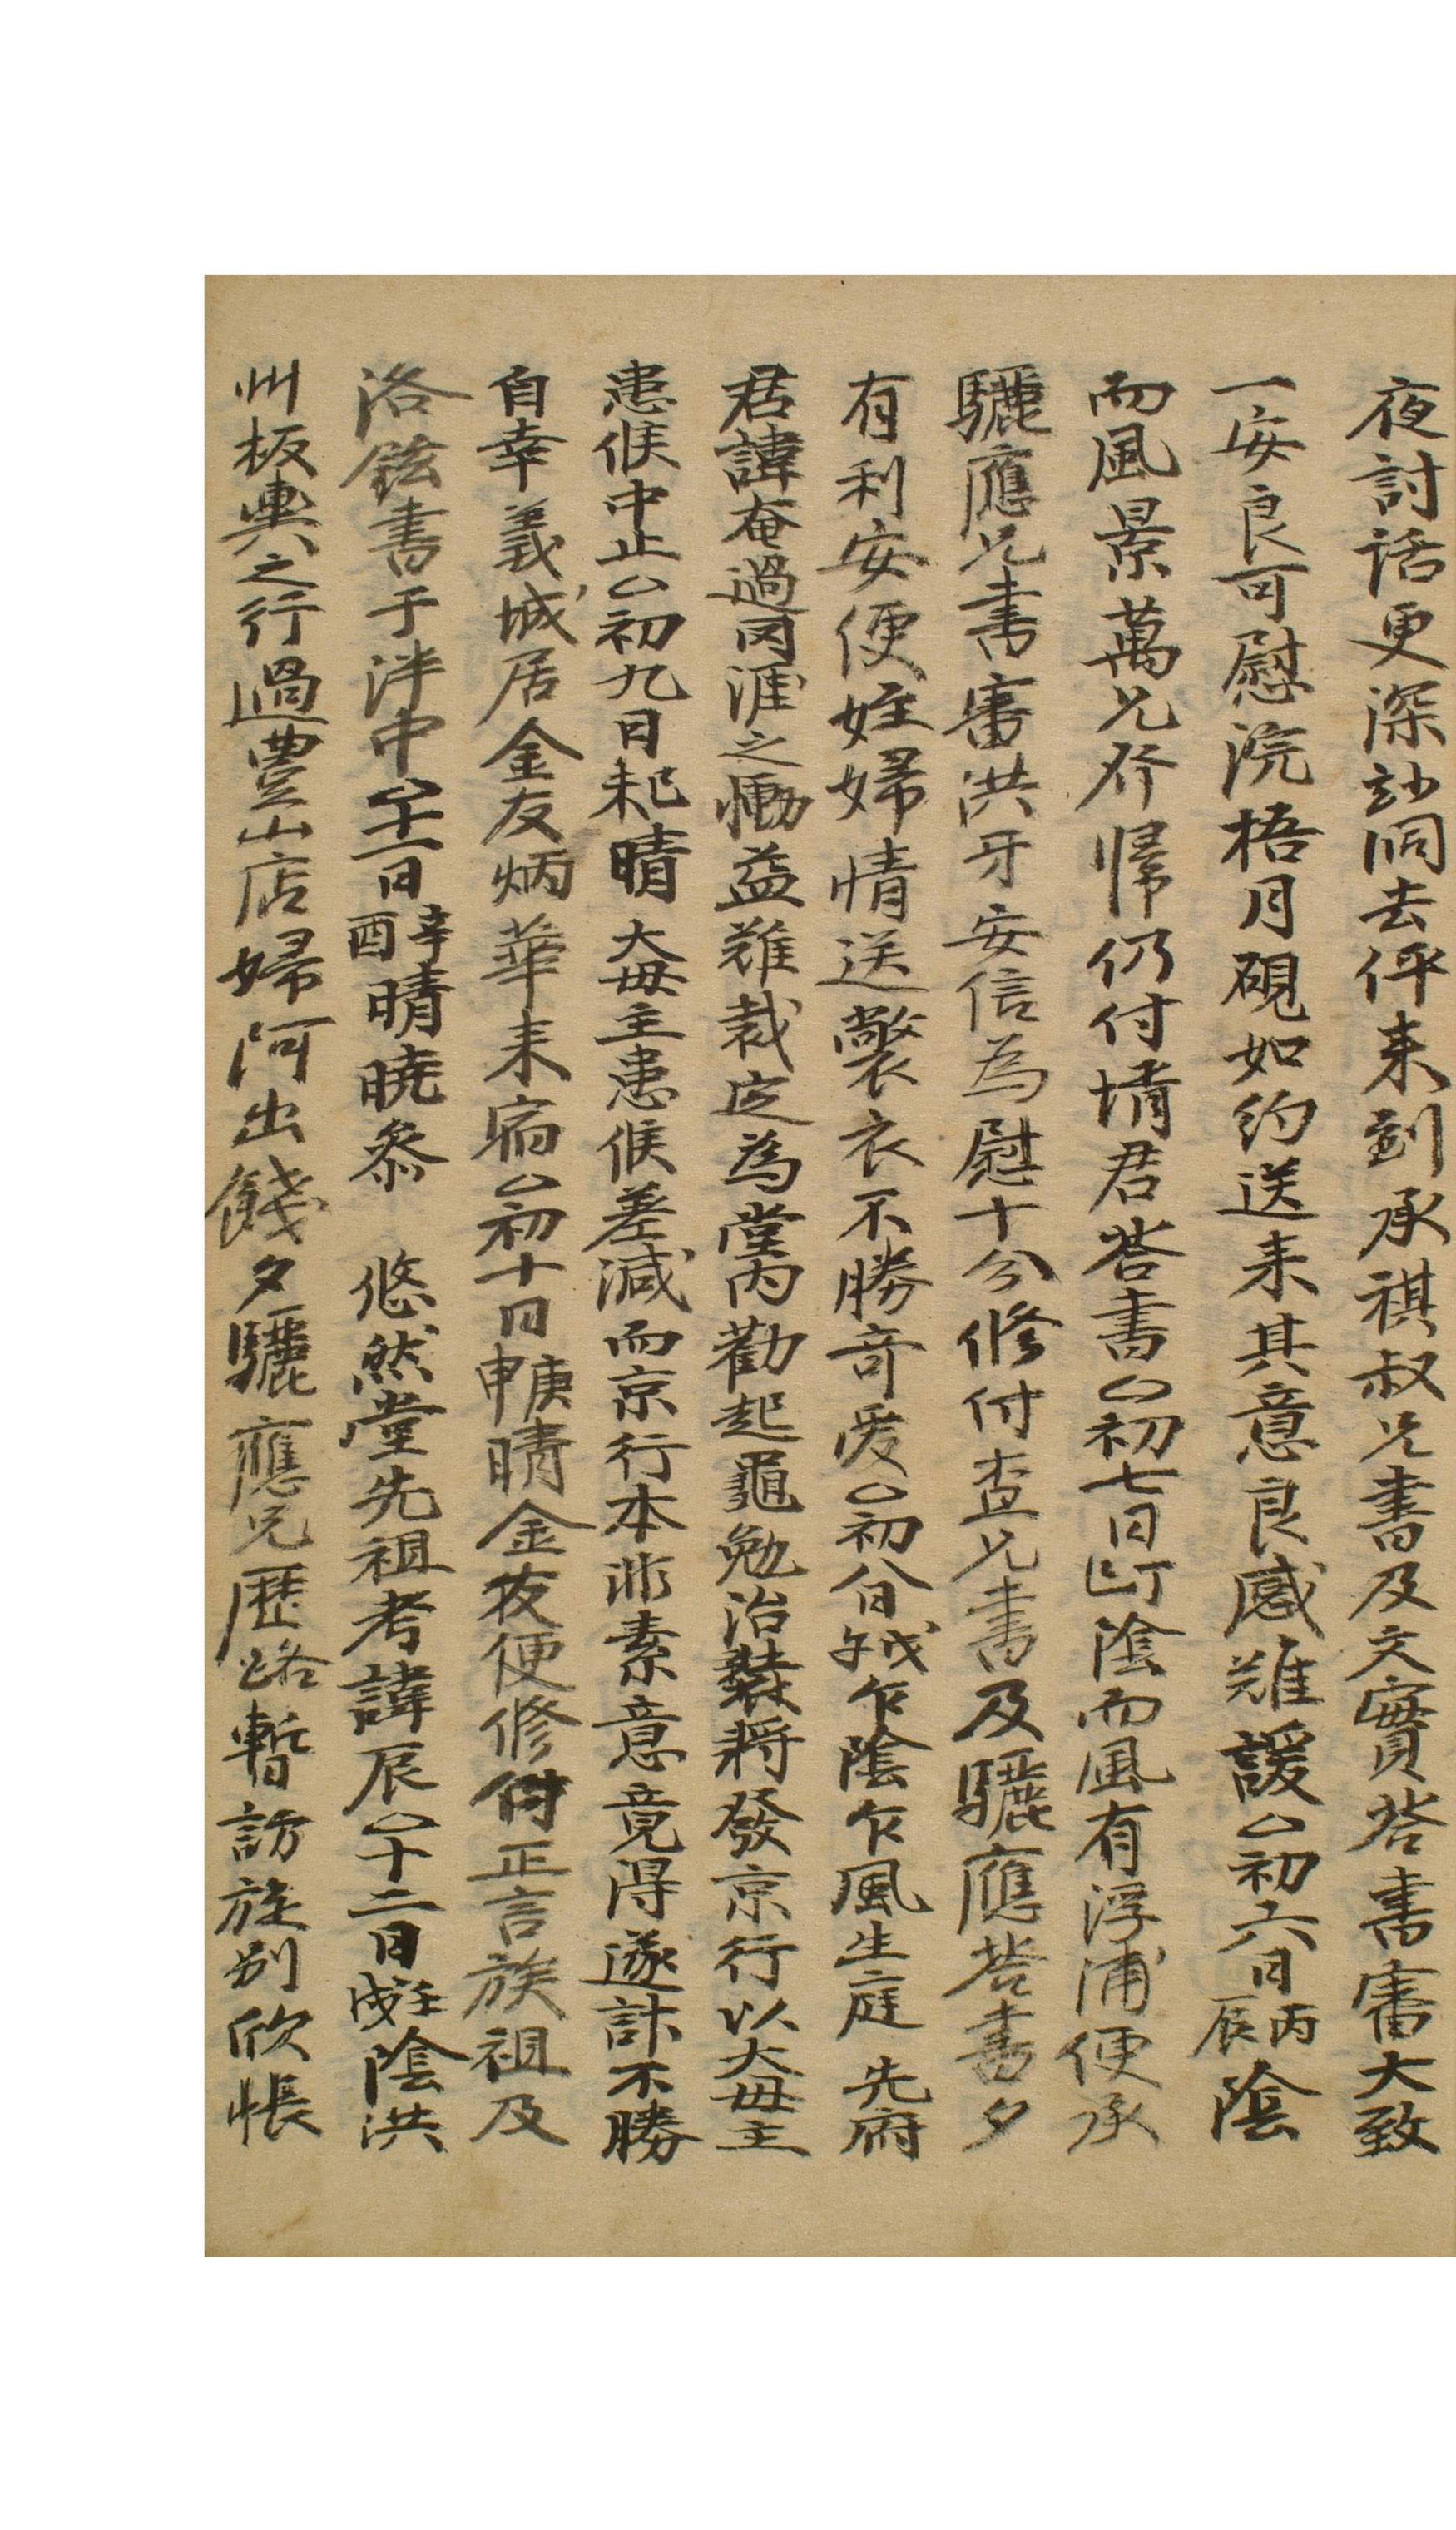 夜討話更深訬洞去伻来到承祺叔兄書及文實答書審大致
一安良可慰浣梧月硯如約送来其意良感難諼〇初六日丙辰陰
而風景萬兄夅㱕仍付壻君答書〇初七日丁巳陰而風有浮浦便承
驪應兄書審洪牙安信為慰十分修付査兄書及驪應答書夕
有利安便姪婦情送䙝衣不勝奇愛〇初八日戊午乍陰乍風生庭 先府
君諱奄過罔涯之慟益難裁定為堂內勸起黽勉治裝將發京行以大毋主
患候中止〇初九日己未晴 大毋主患候差減而京行本非素意竟得遂計不勝
自幸義城居金友炳華来宿〇初十日庚申晴金友便修付正言族祖及
洛鉉書于泮中〇十一日辛酉晴曉叅 悠然堂先祖考諱辰〇十二日壬戌陰洪
州板輿之行過豊山店婦阿出餞夕驪應兄歷路暫訪旋別欣悵